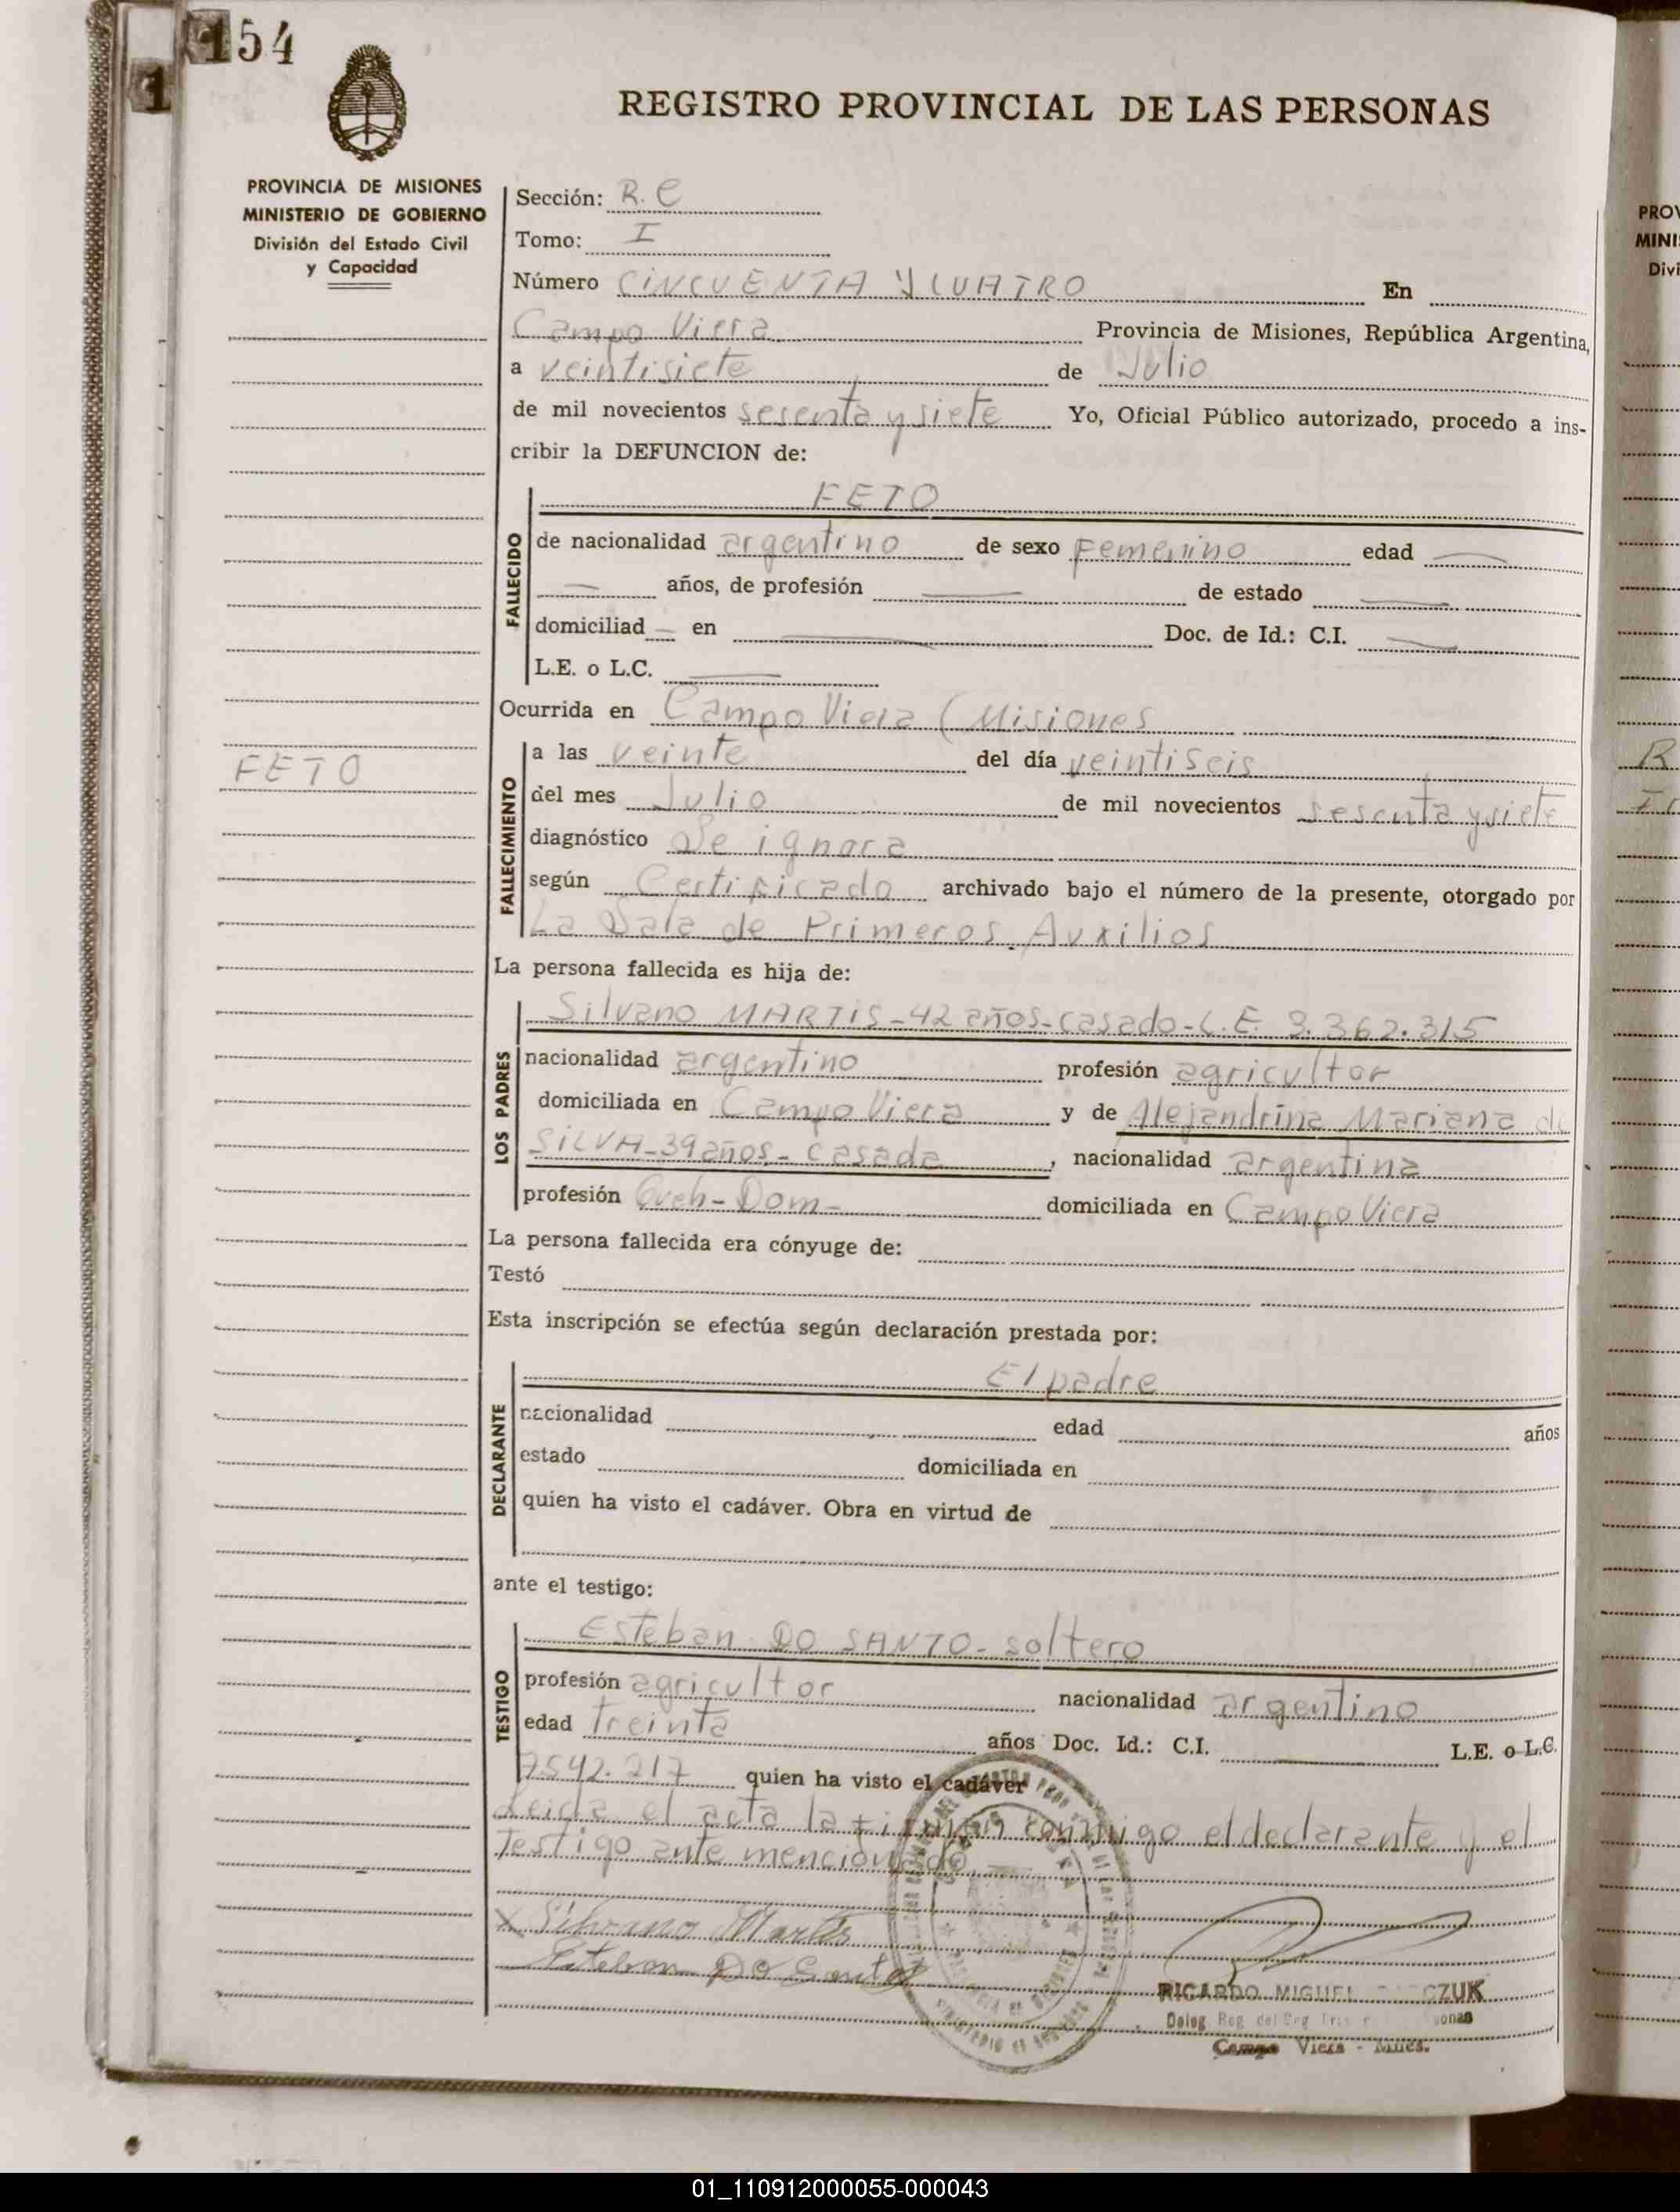 154
1
REGISTRO PROVINCIAL DE LAS PERSONAS
PROVINCIA DE MISIONES
MINISTERIO DE GOBIERNO
División del Estado Civil
y Capacidad
Sección: R. C
Tomo: I
Número CINCUENTA Y CUATRO En
Campo Viera Provincia de Misiones, República Argentina,
a veintisiete de Julio
de mil novecientos sesenta y siete Yo, Oficial Público autorizado, procedo a ins-
cribir la DEFUNCION de:
FETO
FALLECIDO
de nacionalidad argentino de sexo Femenino edad
años, de profesión de estado
domiciliad en Doc. de Id.: C.I.
L.E. o L.C.
Ocurrida en Campo Viera (Misiones
FETO
FALLECIMIENTO
a las veinte del día veintiseis
del mes Julio de mil novecientos sesenta y siete
diagnóstico Se ignora
según Certificado archivado bajo el número de la presente, otorgado por
La Sala de Primeros Auxilios
La persona fallecida es hija de:
LOS PADRES
Silvano MARTIS - 42 años - casado - L.E. 3.362.315
nacionalidad argentino profesión agricultor
domiciliada en Campo Viera y de Alejandrina Mariana de
SILVA - 39 años - casada , nacionalidad argentina
profesión Queh - Dom - domiciliada en Campo Viera
La persona fallecida era cónyuge de:
Testó
Esta inscripción se efectúa según declaración prestada por:
El padre
DECLARANTE
nacionalidad edad años
estado domiciliada en
quien ha visto el cadáver. Obra en virtud de
ante el testigo:
TESTIGO
Esteban DO SANTO - soltero
profesión agricultor nacionalidad argentino
edad treinta años Doc. Id.: C.I. L.E. o L.C.
7542.217 quien ha visto el cadáver
Leida el acta la firman conmigo el declarante y el
Testigo ante mencionado
X Silvano Martis
Esteban DO Santos
RICARDO MIGUEL
Campo Viera - Mnes.
PROV
MINI
Divi
01_110912000055-000043